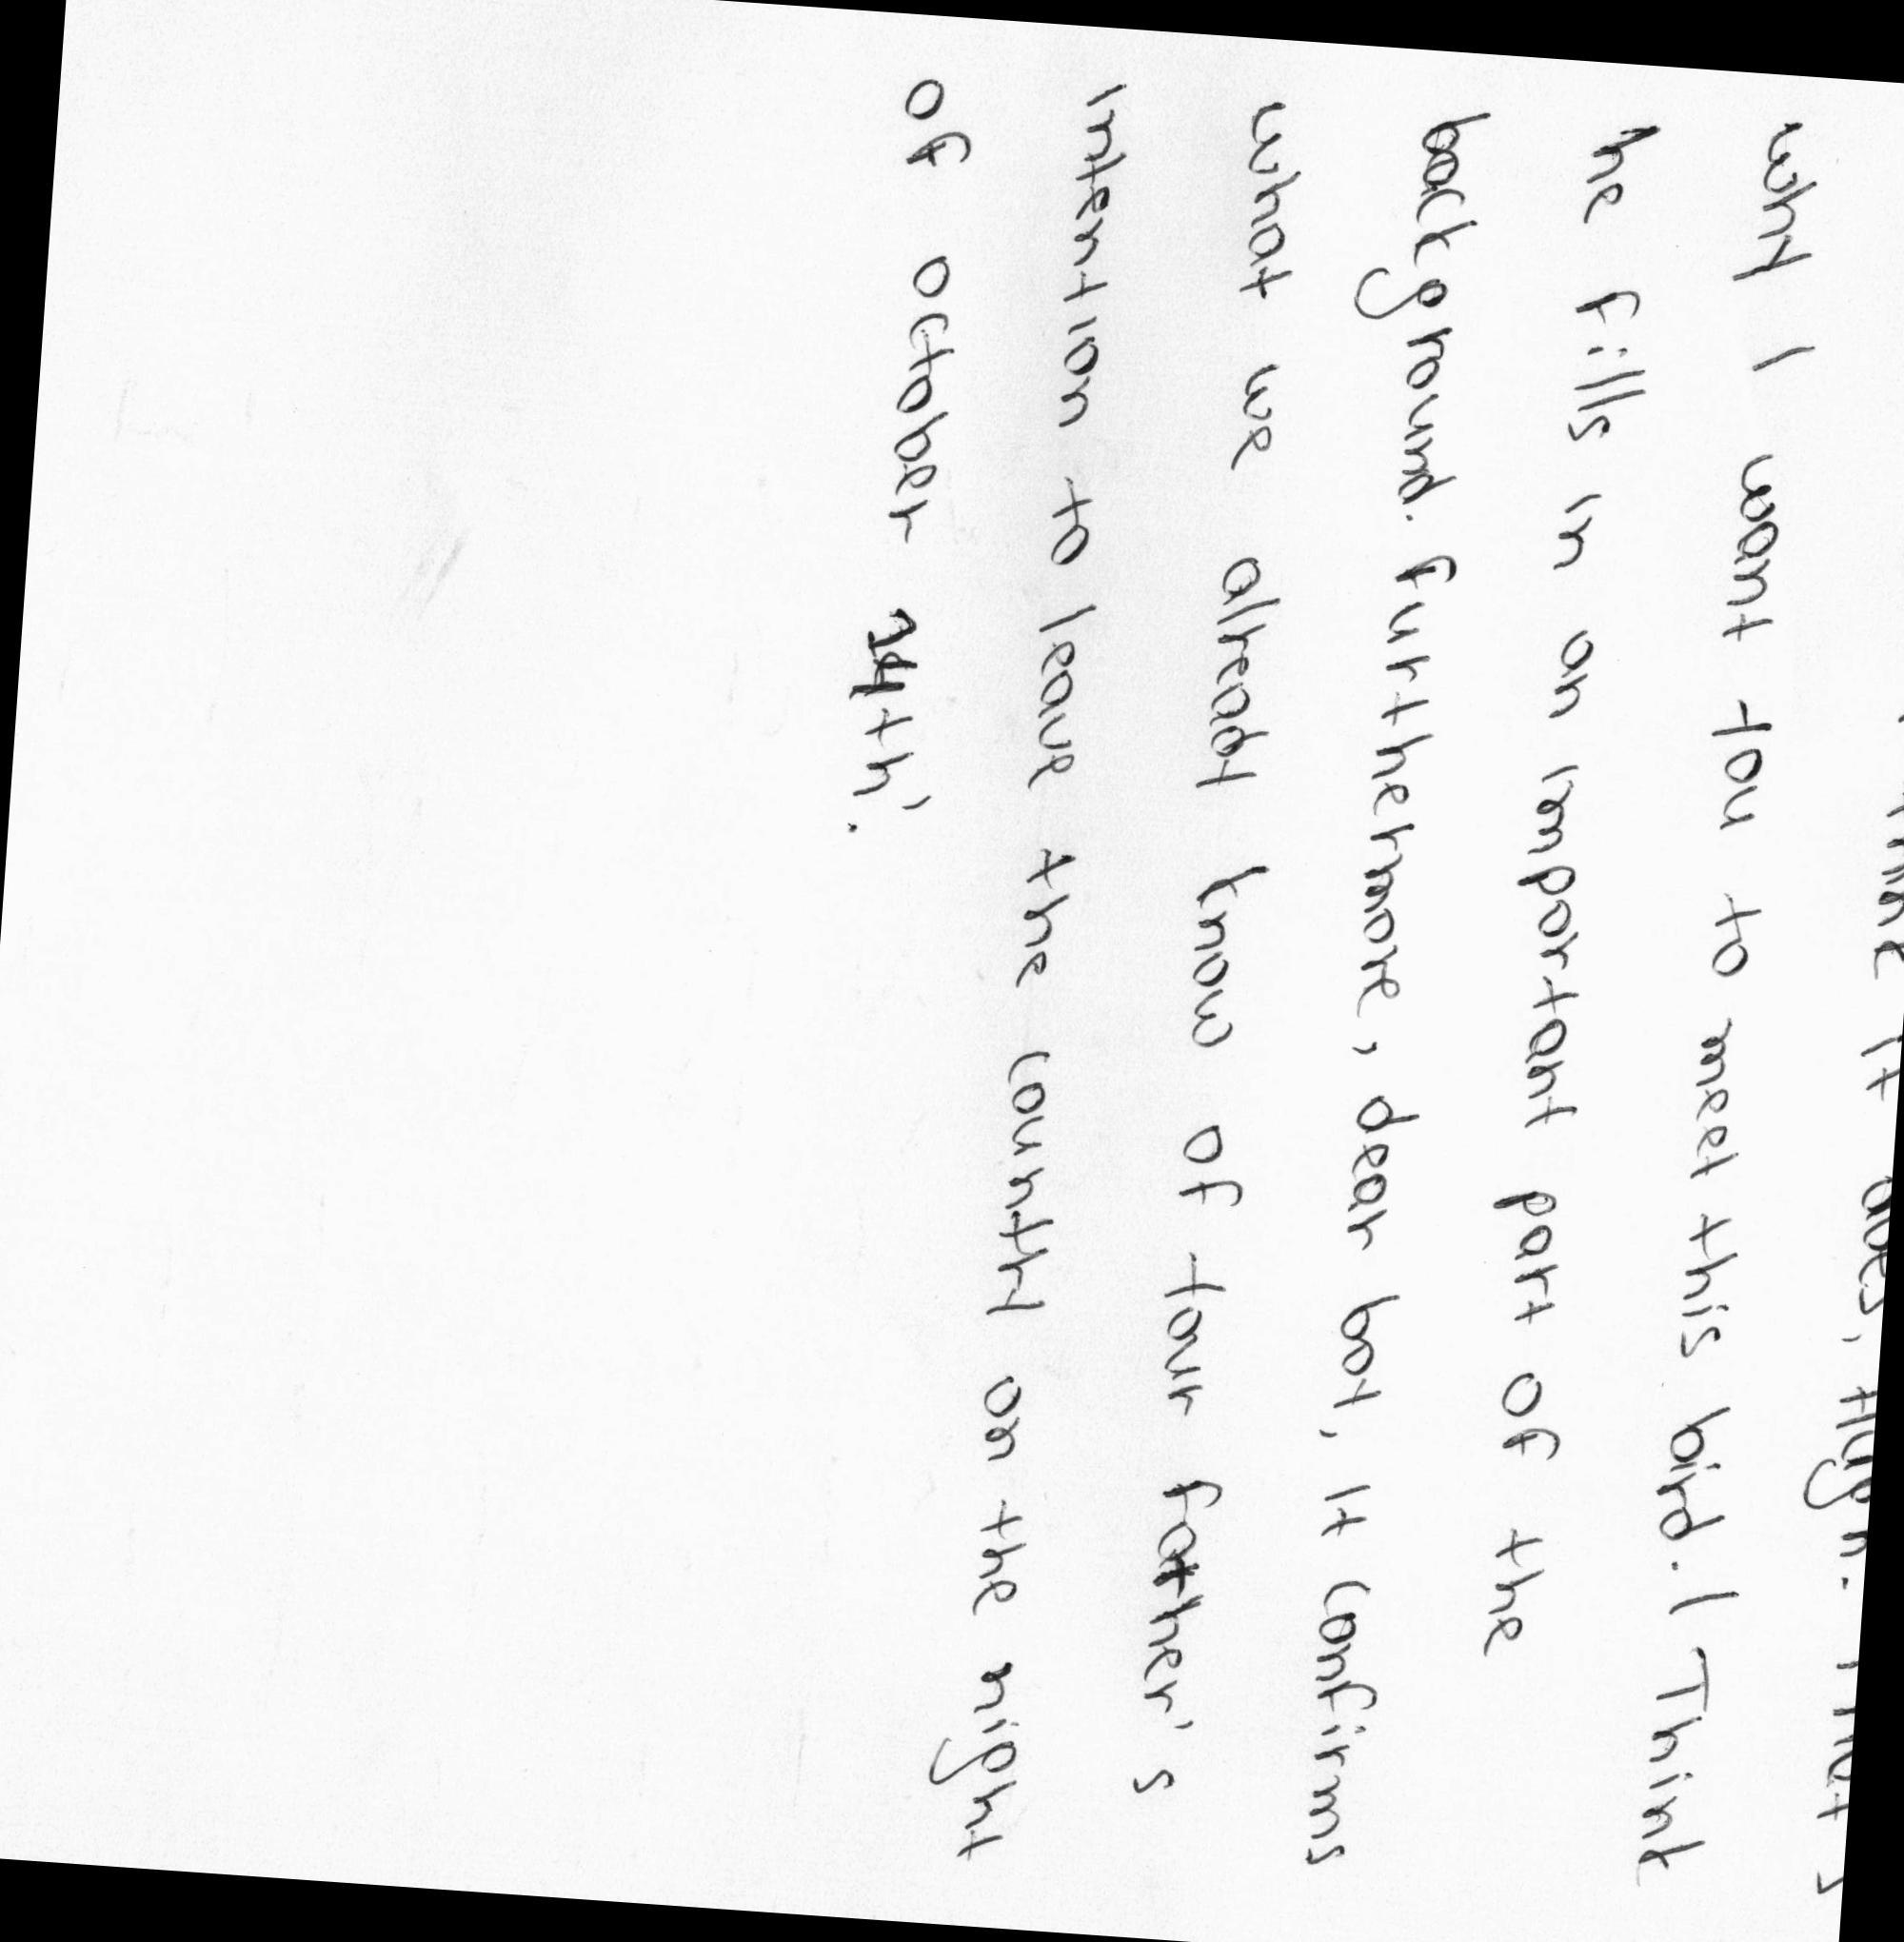 it does, Hugh. That's
why I want you to meet this bird. I Think
he fills in an important part of the
background. furthermore, dear boy, it confirms
what we already know of your father's
intention to leave the country on the night
of october 24th'.